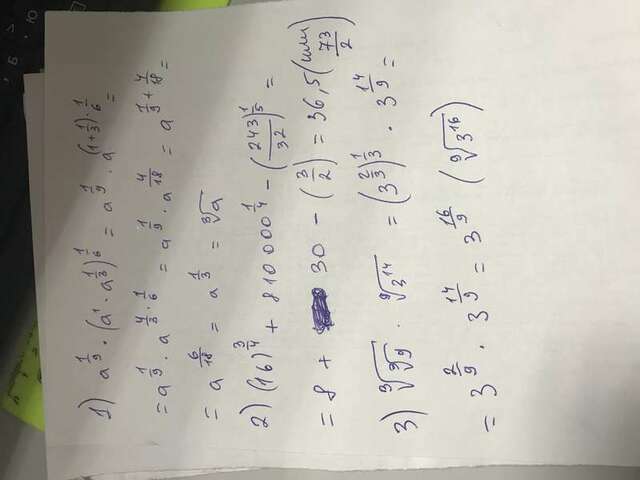 1) a^{1/9} · (a^1 · a^{1/3})^{1/6} = a^{1/9} · a^{(1+1/3)·1/6} =
= a^{1/9} · a^{4/3 · 1/6} = a^{1/9} · a^{4/18} = a^{1/9 + 4/18} =
= a^{6/18} = a^{1/3} = ∛a
2) (16)^{3/4} + 810000^{1/4} − (243/32)^{1/5} =
= 8 + 30 − (3/2) = 36,5 (или 73/2)
3) ∛(∛9) · ⁹√(3^{14}) = (3^{2/3})^{1/3} · 3^{14/9} =
= 3^{2/9} · 3^{14/9} = 3^{16/9} (⁹√(3^{16}))
Б
Ю